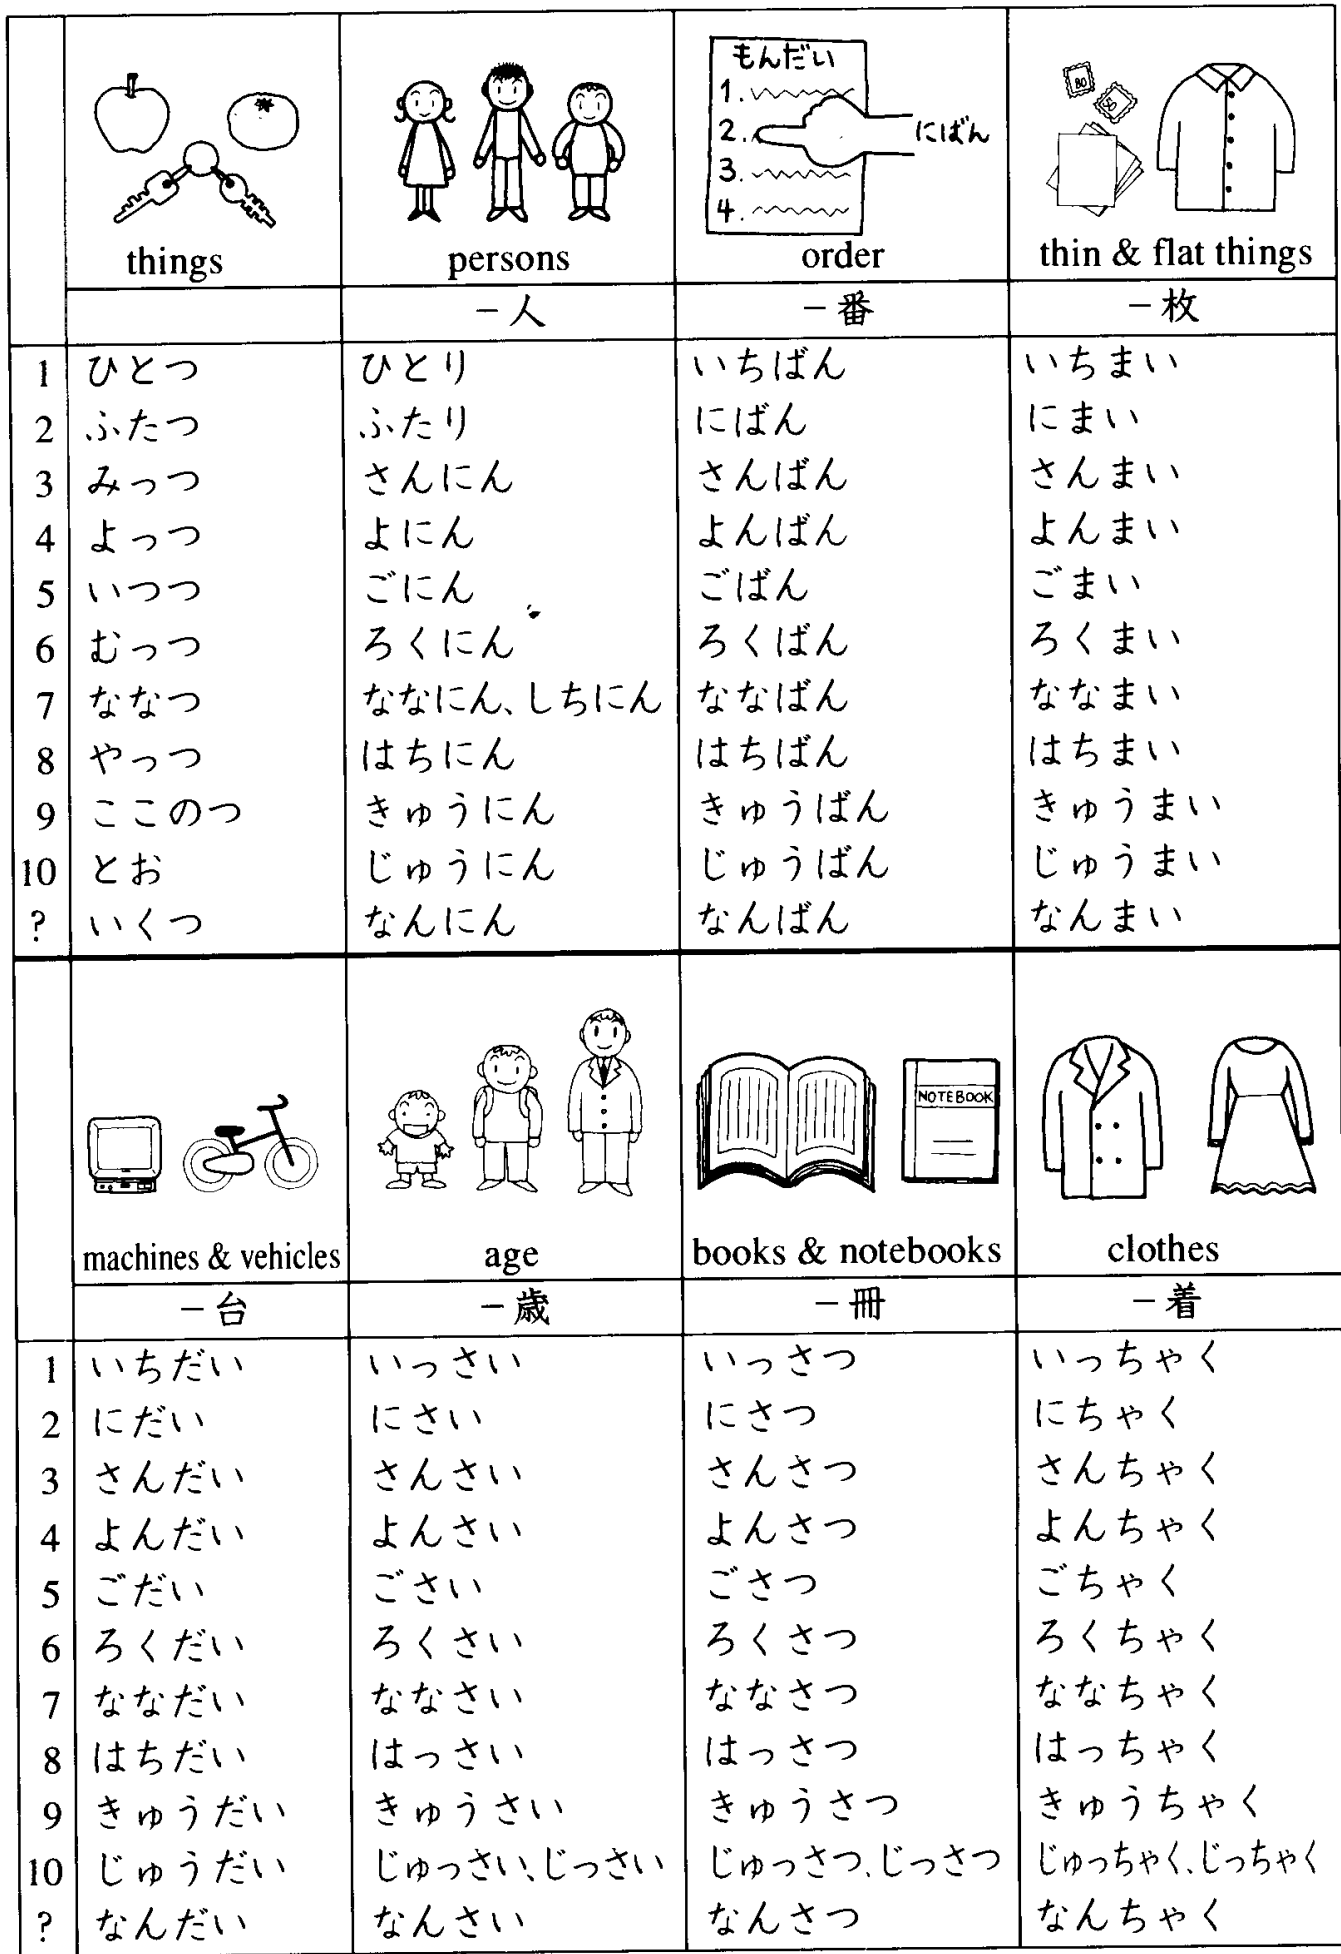 もんだい
1.
2.
にばん
3.
4.
80
things persons order thin & flat things
－人 －番 －枚
1 ひとつ ひとり いちばん いちまい
2 ふたつ ふたり にばん にまい
3 みっつ さんにん さんばん さんまい
4 よっつ よにん よんばん よんまい
5 いつつ ごにん ごばん ごまい
6 むっつ ろくにん ろくばん ろくまい
7 ななつ ななにん、しちにん ななばん ななまい
8 やっつ はちにん はちばん はちまい
9 ここのつ きゅうにん きゅうばん きゅうまい
10 とお じゅうにん じゅうばん じゅうまい
? いくつ なんにん なんばん なんまい
NOTEBOOK
machines & vehicles age books & notebooks clothes
－台 －歳 －冊 －着
1 いちだい いっさい いっさつ いっちゃく
2 にだい にさい にさつ にちゃく
3 さんだい さんさい さんさつ さんちゃく
4 よんだい よんさい よんさつ よんちゃく
5 ごだい ごさい ごさつ ごちゃく
6 ろくだい ろくさい ろくさつ ろくちゃく
7 ななだい ななさい ななさつ ななちゃく
8 はちだい はっさい はっさつ はっちゃく
9 きゅうだい きゅうさい きゅうさつ きゅうちゃく
10 じゅうだい じゅっさい、じっさい じゅっさつ、じっさつ じゅっちゃく、じっちゃく
? なんだい なんさい なんさつ なんちゃく